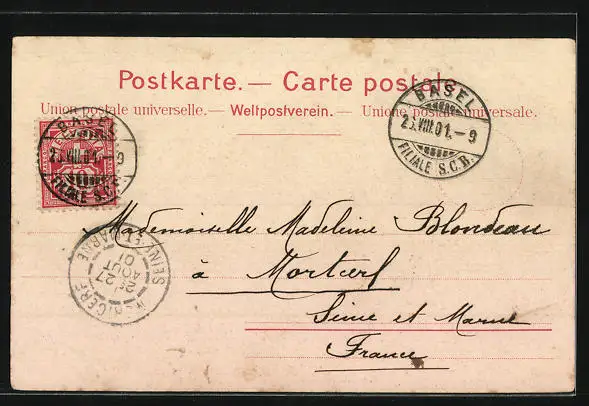 Postkarte. — Carte postale.
Union postale universelle. — Weltpostverein. — Unione postale universale.
BASEL
25.VIII.01.–9
FILIALE S.C.B.
BASEL
25.VIII.01.–9
FILIALE S.C.B.
Mademoiselle Madeleine Blondeau
à Mortcerf
Seine et Marne
France
MORTCERF
2E
27
AOUT
01
SEINE-ET-MARNE